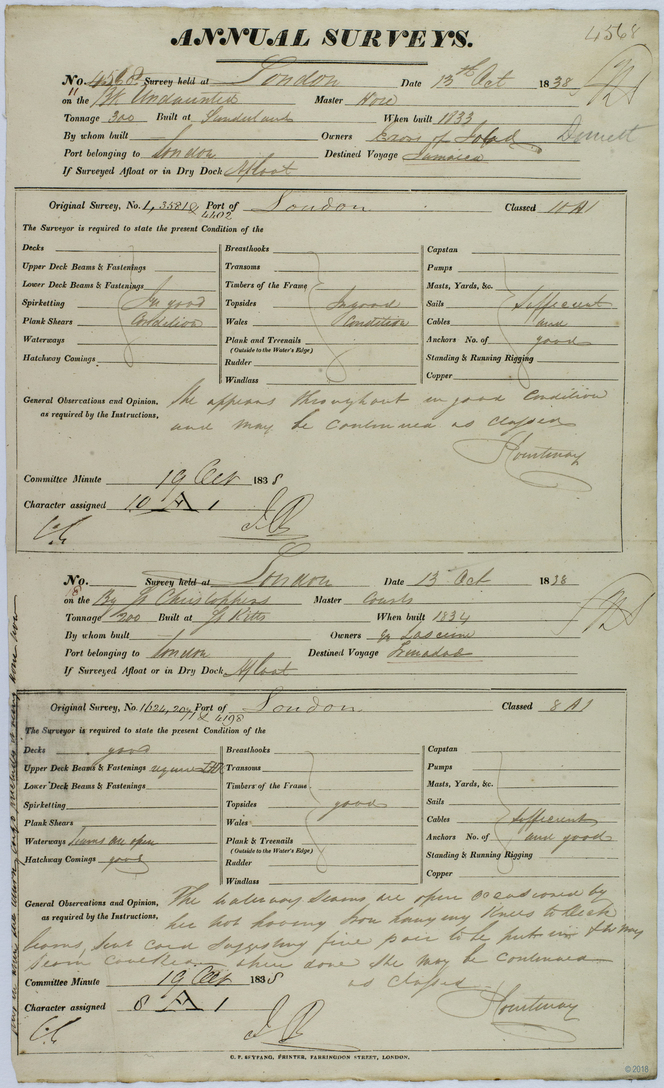 4568
ANNUAL SURVEYS.
No. 4568 Survey held at London Date 13th Oct 1838
on the Bk Undaunted Master
Tonnage 300 Built at Sunderland When built 1833
By whom built Owners
Port belonging to London Destined Voyage Jamaica
If Surveyed Afloat or in Dry Dock Afloat
Original Survey, No. Port of London Classed 10 A1
4402
The Surveyor is required to state the present Condition of the
Decks Breasthooks Capstan
Upper Deck Beams & Fastenings Transoms Pumps
Lower Deck Beams & Fastenings Timbers of the Frame Masts, Yards, &c.
Spirketting In good Topsides In good Sails Sufficient
Plank Shears Condition Wales Condition Cables and
Waterways Plank and Treenails Anchors No. of good
(Outside to the Water's Edge)
Hatchway Comings Rudder Standing & Running Rigging
Windlass Copper
General Observations and Opinion, She appears throughout in good Condition
as required by the Instructions, and may be continued as classed
Courtenay
Committee Minute 19 Oct 1838
Character assigned 10 A 1
No. Survey held at London Date 13 Oct 1838
on the Bg St Christophers Master
Tonnage 200 Built at St Kitts When built 1834
By whom built Owners
Port belonging to London Destined Voyage Trinidad
If Surveyed Afloat or in Dry Dock Afloat
Original Survey, No. Port of London Classed 8 A1
& 4198
The Surveyor is required to state the present Condition of the
Decks good Breasthooks Capstan
Upper Deck Beams & Fastenings Transoms Pumps
Lower Deck Beams & Fastenings Timbers of the Frame Masts, Yards, &c.
Spirketting Topsides good Sails
Plank Shears Wales Cables Sufficient
Waterways Seams are open Plank & Treenails Anchors No. of and good
(Outside to the Water's Edge)
Hatchway Comings good Rudder Standing & Running Rigging
Windlass Copper
General Observations and Opinion, The waterway seams are open occasioned by
as required by the Instructions, her not having Iron hanging Knees to Deck
beams, five pair to be put in
when done She may be continued
Committee Minute 19 Oct 1838 as classed
Character assigned 8 A 1 Courtenay
C. F. SEYFANG, PRINTER, FARRINGDON STREET, LONDON.
© 2018